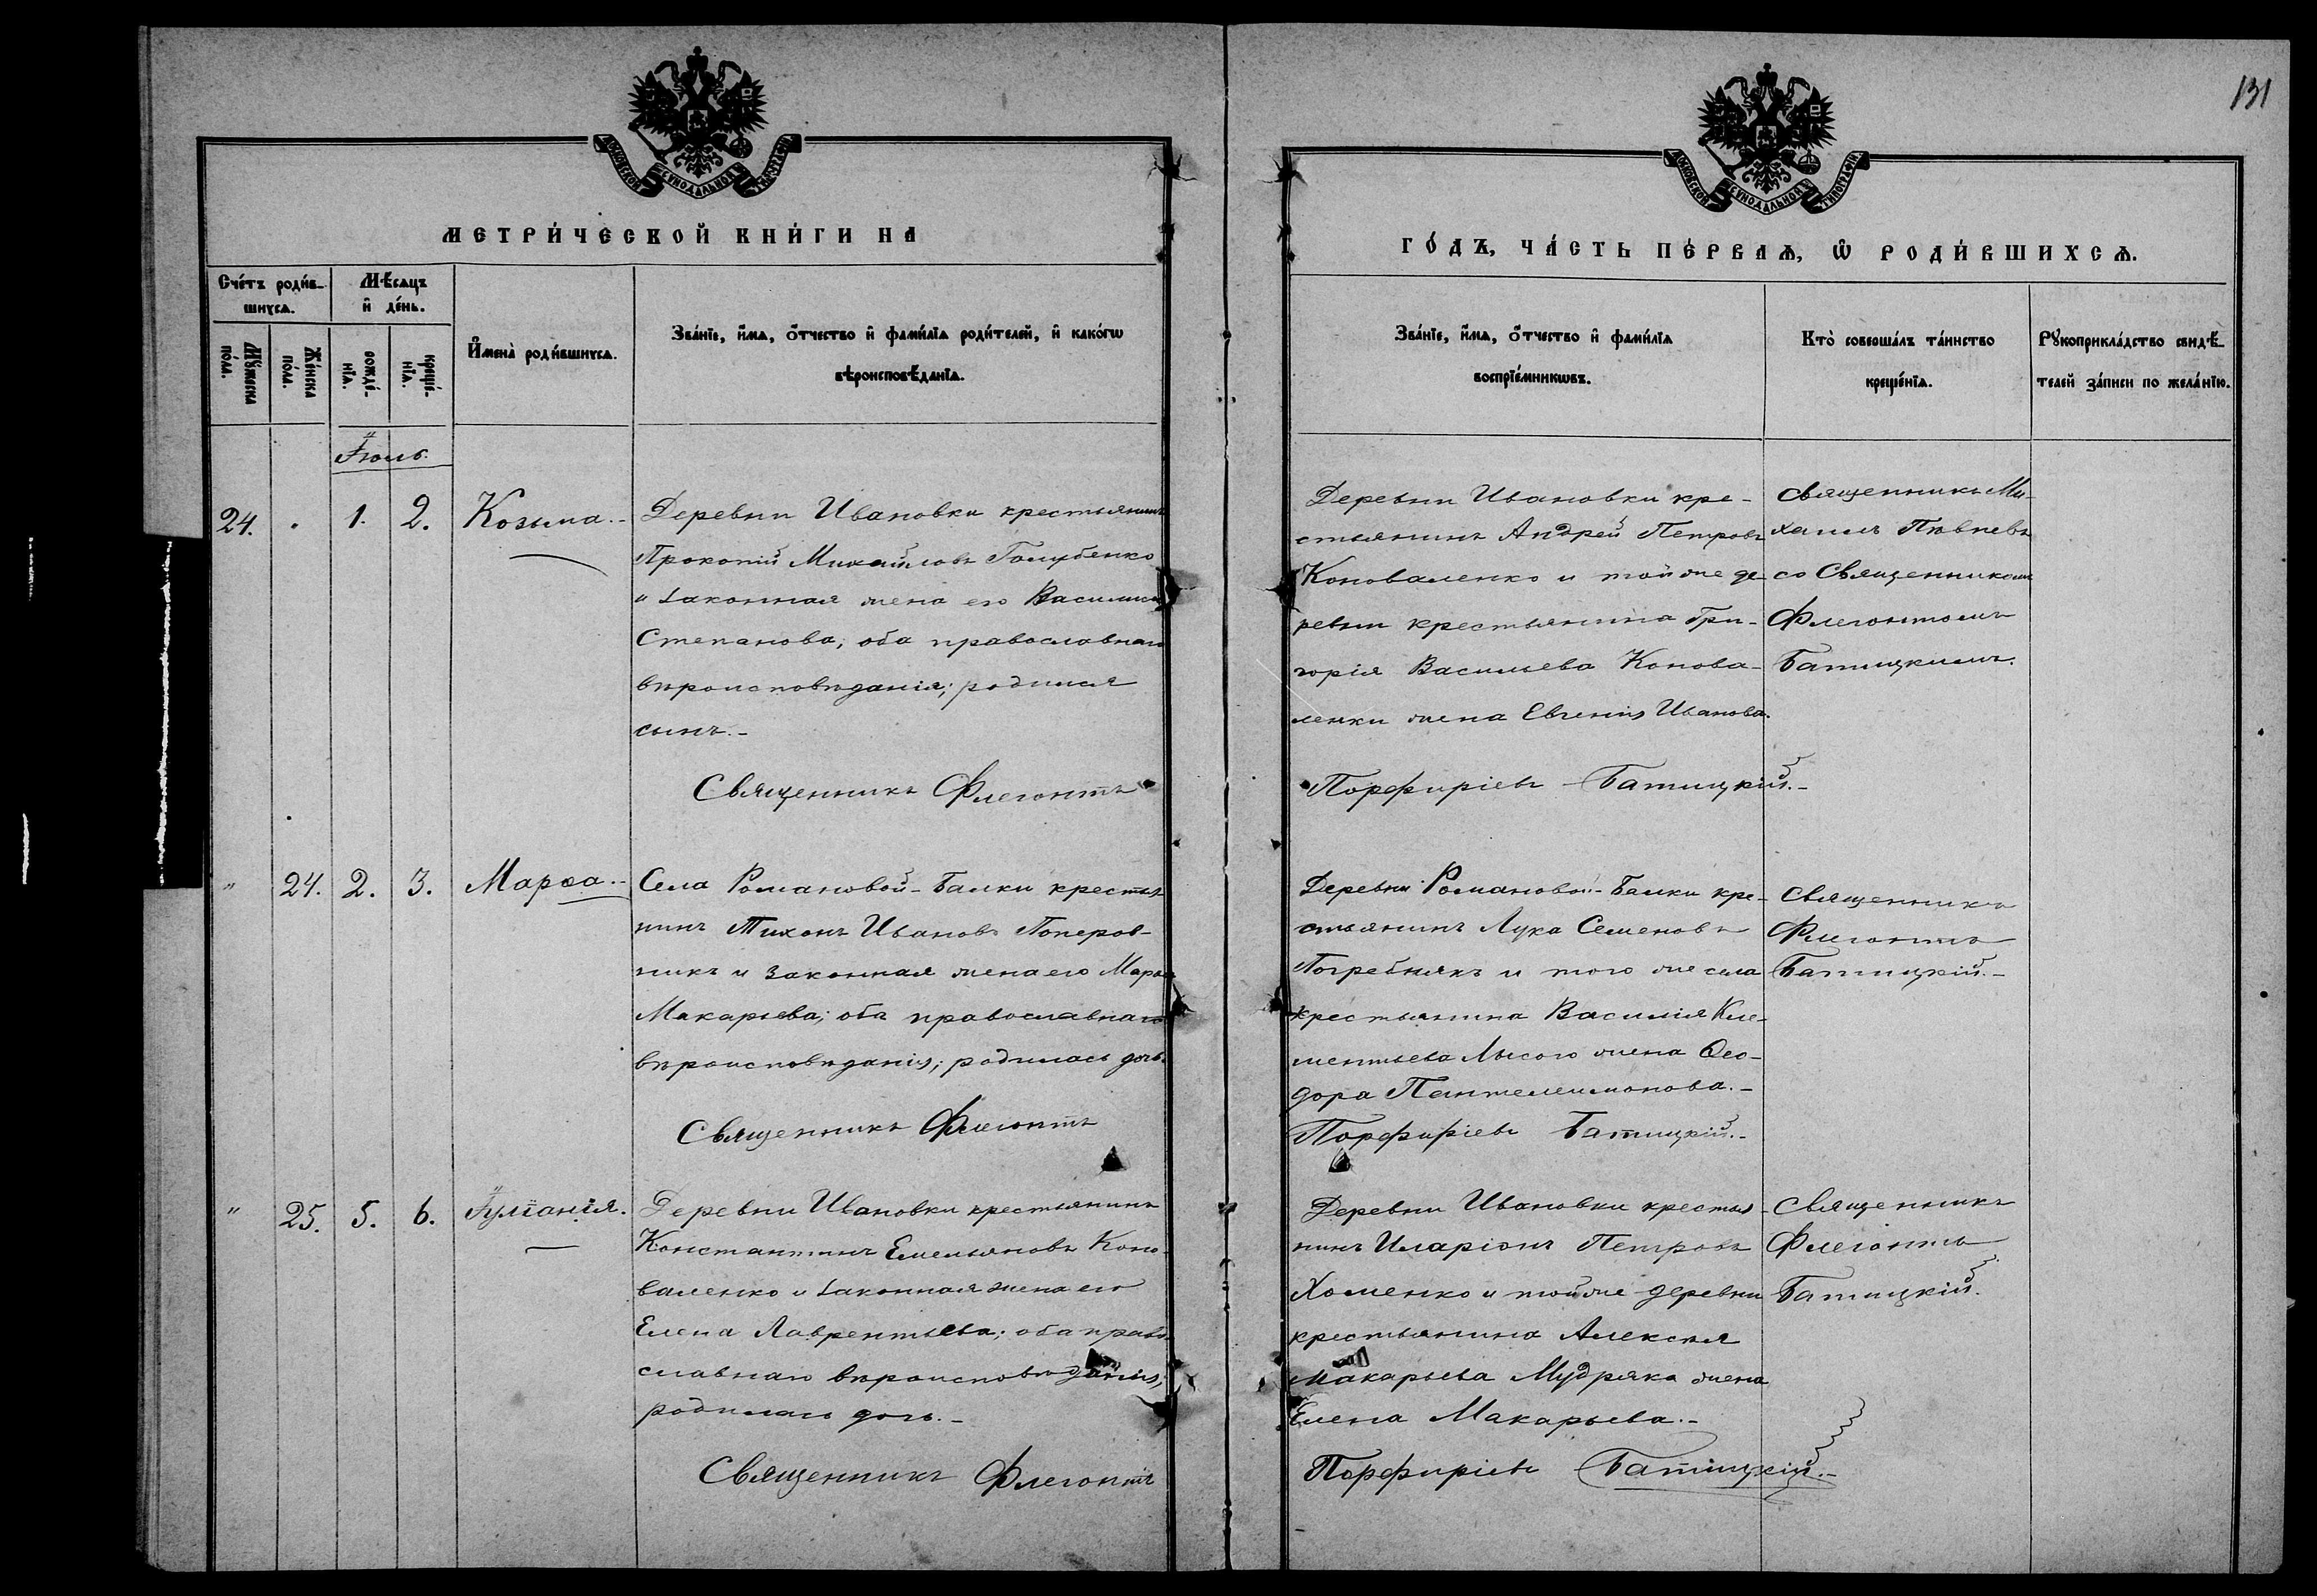 131
МОСКОВСКОЙ СѴНОДАЛЬНОЙ ТИПОГРАФІИ
МОСКОВСКОЙ СѴНОДАЛЬНОЙ ТИПОГРАФІИ
МЕТРИ́ЧЕСКОЙ КНИ́ГИ НА
ГО́ДЪ, ЧА́СТЬ ПЕ́РВАѦ, Ѡ҆ РОДИ́ВШИХСѦ.
Сче́тъ роди́в-
шихсѧ.
Мꙋ́жеска по́ла.
Же́нска по́ла.
Мѣ́сѧцъ
и҆ де́нь.
рожде́-нїѧ.
креще́-нїѧ.
И҆мена̀ роди́вшихсѧ.
Зва́нїе, и҆́мѧ, ѻ҆́тчество и҆ фами́лїѧ роди́телей, и҆ како́гѡ
вѣроисповѣ́данїѧ.
Зва́нїе, и҆́мѧ, ѻ҆́тчество и҆ фами́лїѧ
воспрїе́мникѡвъ.
Кто̀ соверша́лъ та́инство
креще́нїѧ.
Рꙋкоприкла́дство свидѣ́-
телей за́писи по жела́нїю.
Іюль.
24. 1. 2. Козьма.-
Деревни Ивановки крестьянинъ
Прокопій Михайловъ Голубенко
и законная жена его Василиса
Степанова, оба православнаго
вѣроисповѣданія; родился
сынъ.-
Священникъ Флегонтъ
Деревни Ивановки кре-
стьянинъ Андрей Петровъ
Коноваленко и той же де-
ревни крестьянина Гри-
горія Васильева Конова-
ленки жена Евгенія Иванова.
Порфиріевъ Батицкій.-
Священникъ Ми-
хаилъ Пѣвневъ
со Священникомъ
Флегонтомъ
Батицкимъ.
" 24. 2. 3. Марѳа.-
Села Романовой-Балки крестья
нинъ Тихонъ Ивановъ Поперов-
никъ и законная жена его Марѳа
Макарьева; оба православнаго
вѣроисповѣданія; родилась дочь.
Священникъ Флегонтъ
Деревни Романовой-Балки кре-
стьянинъ Лука Семеновъ
Погребнякъ и того же села
крестьянина Василія Кле-
ментьева Лысого жена Ѳео-
дора Пантелеимонова.-
Порфиріевъ Батицкій.-
Священникъ
Флегонтъ
Батицкій.-
" 25. 5. 6. Іуліанія.
Деревни Ивановки крестьянинъ
Константинъ Емельяновъ Коно-
валенко и законная жена его
Елена Лаврентьева; оба право-
славнаго вѣроисповѣданія;
родилась дочь.-
Священникъ Флегонтъ
Деревни Ивановки крестья-
нинъ Иларіонъ Петровъ
Хоменко и той же деревни
крестьянина Алексѣя
Макарьева Мудряка жена
Елена Макарьева.-
Порфиріевъ Батицкій.-
Священникъ
Флегонтъ
Батицкій.